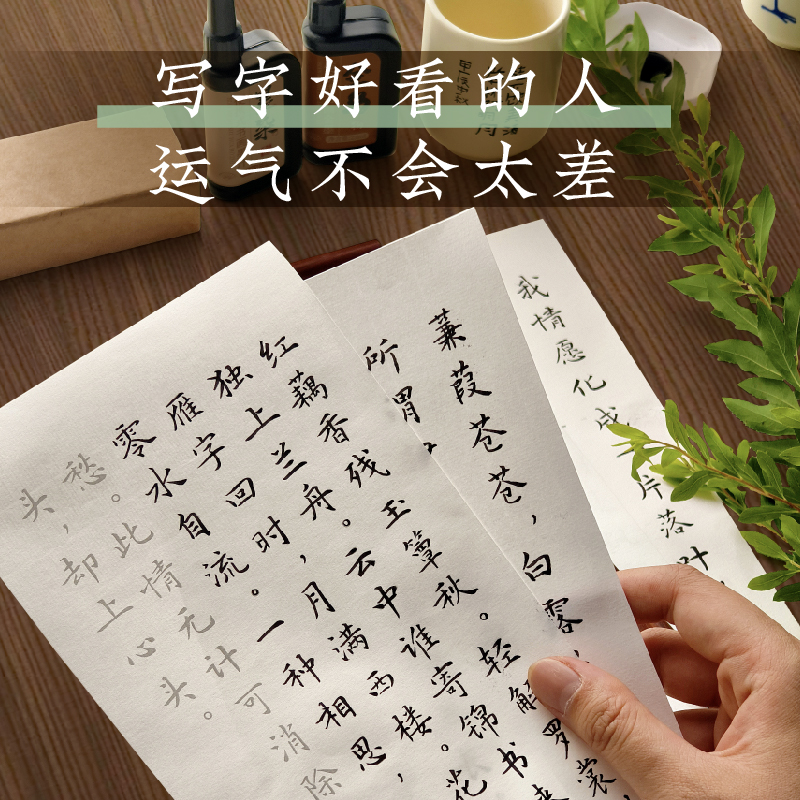 写字好看的人
运气不会太差
红藕香残玉簟秋。轻解罗裳,
独上兰舟。云中谁寄锦书来
雁字回时,月满西楼。花
零水自流。一种相思,
愁。此情无计可消除
头,却上心头。
蒹葭苍苍,白露
所谓
我情愿化成片落叶